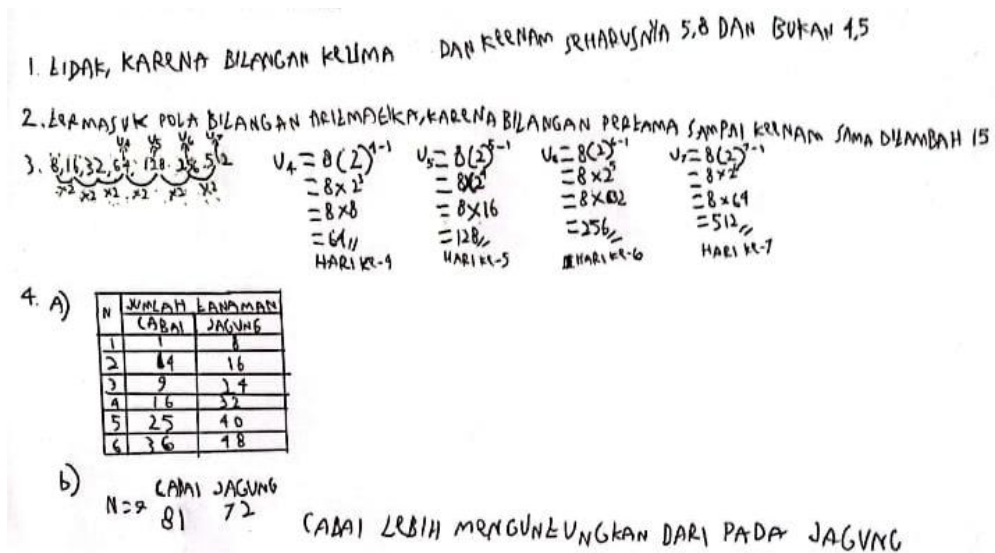 1. TIDAK, KARENA BILANGAN KELIMA DAN KEENAM SEHARUSNYA 5,8 DAN BUKAN 4,5
2. TERMASUK POLA BILANGAN ARITMATIKA, KARENA BILANGAN PERTAMA SAMPAI KEENAM SAMA DITAMBAH 15
U4 U5 U6 U7
3. 8, 16, 32, 64, 128, 256, 512
×2 ×2 ×2 ×2 ×2 ×2
U4 = 8(2)^4-1 U5 = 8(2)^5-1 U6 = 8(2)^6-1 U7 = 8(2)^7-1
= 8×2^3 = 8×2^4 = 8×2^5 = 8×2^6
= 8×8 = 8×16 = 8×32 = 8×64
= 64 // = 128 // = 256 // = 512 //
HARI KE-4 HARI KE-5 HARI KE-6 HARI KE-7
4. A)
N JUMLAH TANAMAN
CABAI JAGUNG
1 1 8
2 4 16
3 9 24
4 16 32
5 25 40
6 36 48
b) CABAI JAGUNG
N=9 81 72
CABAI LEBIH MENGUNTUNGKAN DARI PADA JAGUNG